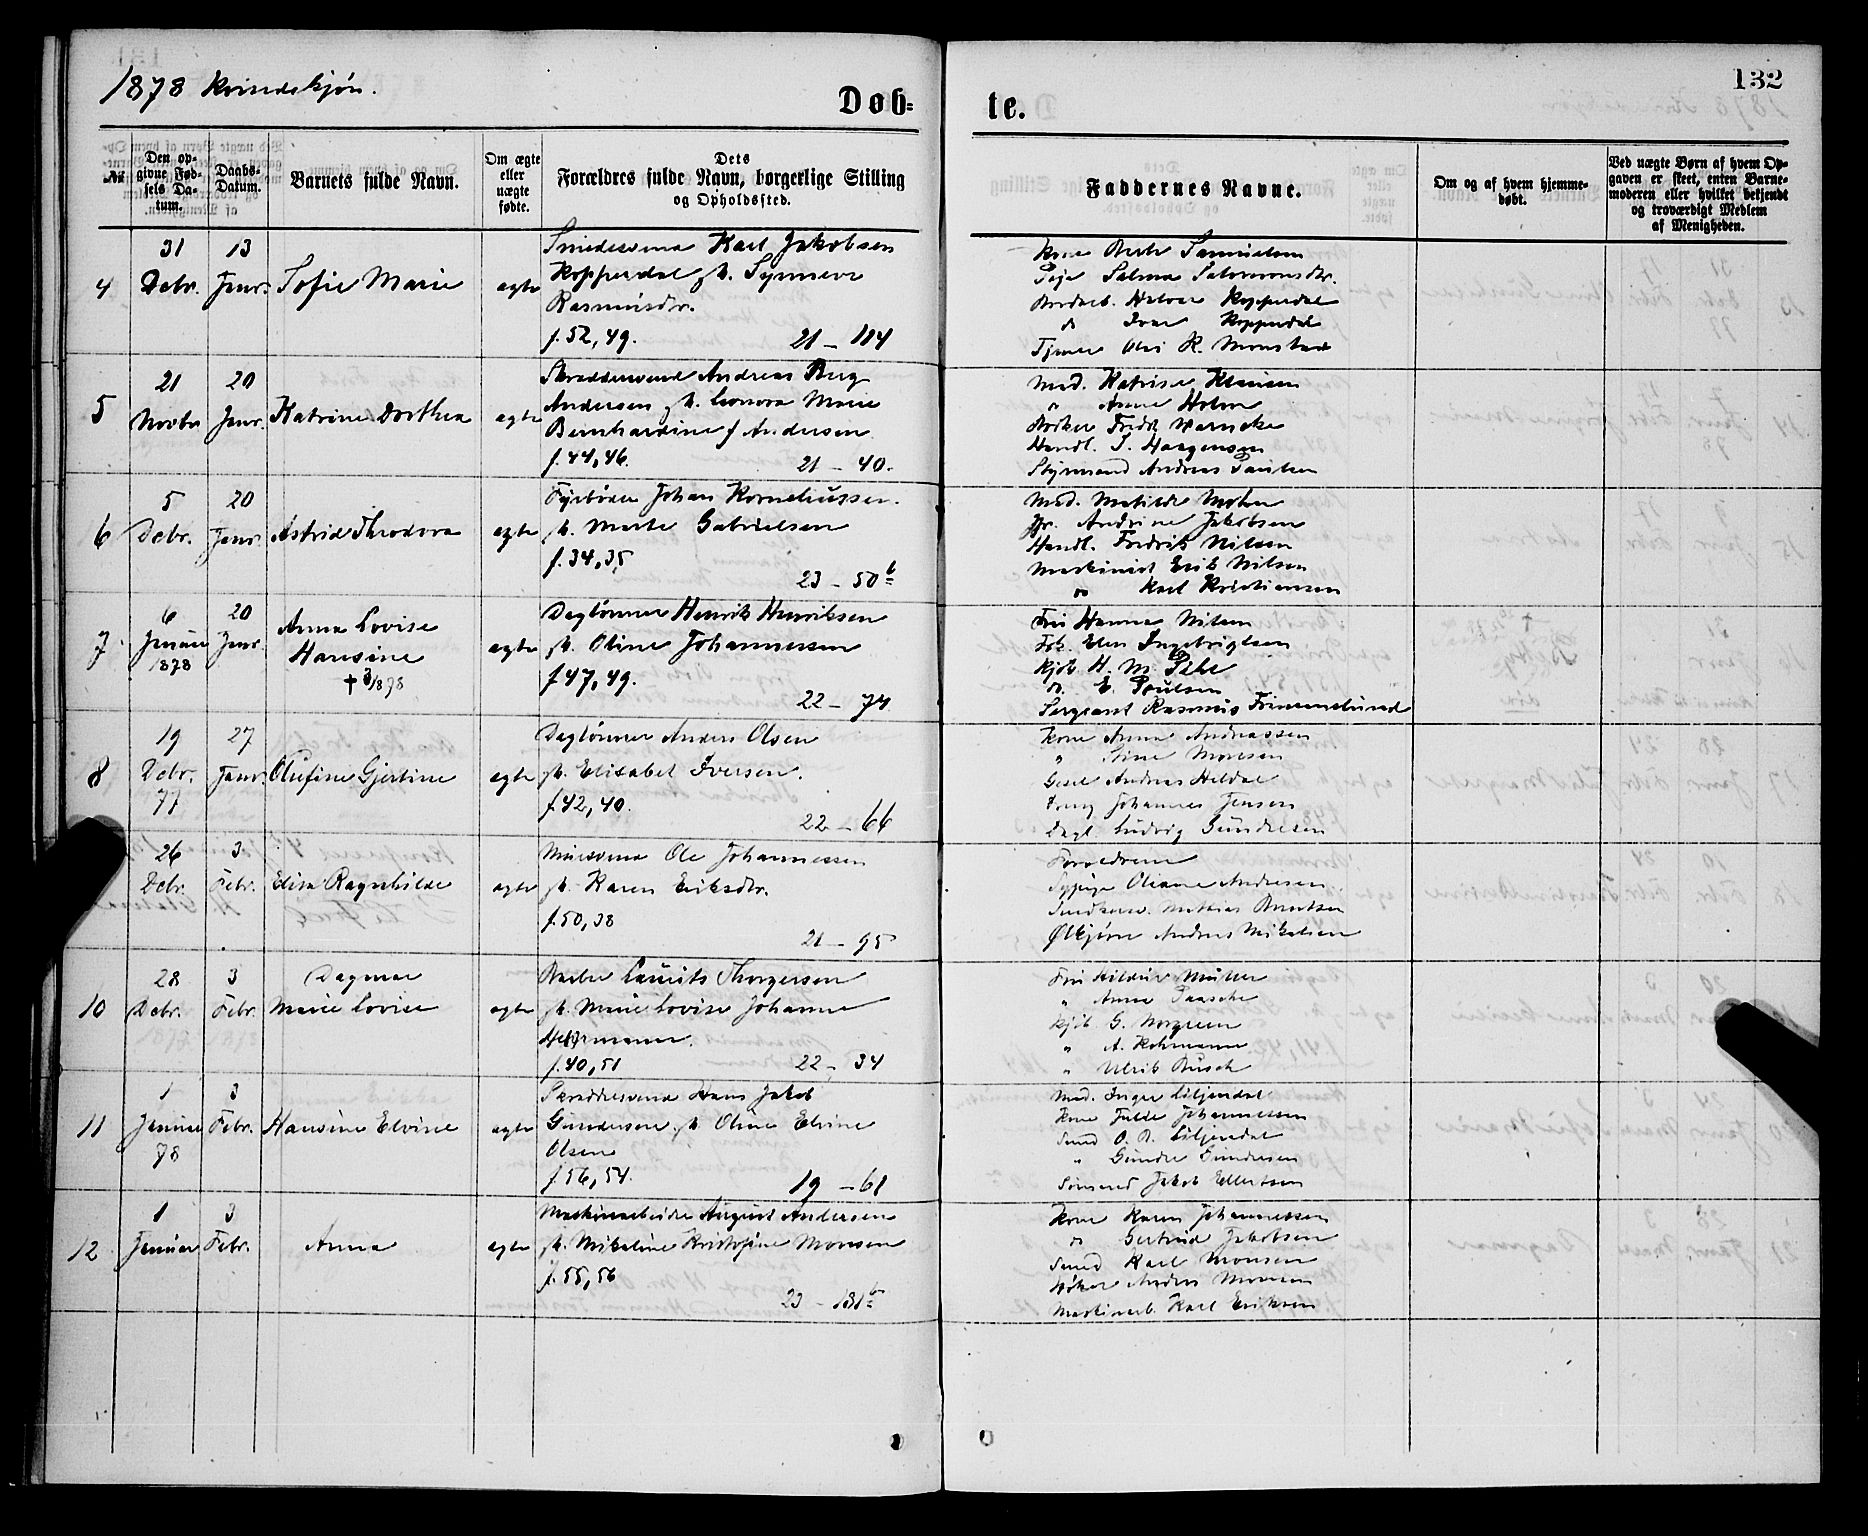 1878 Kvindekjøn.
Døb-
te.
132
Nr.
Den op-
givne Fød-
sels Da-
tum.
Daabs-
Datum.
Barnets fulde Navn.
Om ægte
eller
uægte
fødte.
Dets
Forældres fulde Navn, borgerlige Stilling
og Opholdssted.
Faddernes Navne.
Om og af hvem hjemme-
døbt.
Ved uægte Børn af hvem Op-
gaven er skeet, enten Barne-
moderen eller hvilket bekjendt
og troværdigt Medlem
af Menigheden.
4
31
Debr.
13
Janr.
Sofie Marie
ægte
Smedesvend Karl Jakobsen
Kopperdal og h. Synneve
Rasmusdtr.
f. 52, 49.
21 - 114
Kone Berte Samuelsen
Pige Salma Salomonsdtr.
Arbeid. Halvor Kopperdal
do Ivar Kopperdal
Tjener Ole K. Monstad
5
21
Novbr
20
Janr.
Katrine Dorthea
ægte
Skreddersvend Andreas Berg
Andersen og h. Leonora Marie
Bernhardine f Andersen
f. 44, 46.
21 - 40.
Mad. Katrine Klausen
" Anne Holm
Bødker Fredr. Warncke
Handl. J. Haagensen
Styrmand Andreas Paulsen
6
5
Debr.
20
Janr.
Astrid Theodora
ægte
Fyrbøder Johan Korneliussen.
h. Marte Gabrielsen
f. 34, 35
23 - 50 b
Mad. Matilde Mohn
Jfr. Andrine Jakobsen
Handl. Fredrik Nilsen
Maskinist Erik Nilsen
do Karl Kristiansen
7
6
Januar
1878
20
Janr.
Anna Lovise
Hansine
ægte
Daglønner Henrik Henriksen
h. Oline Johannessen
f 47, 49.
22 - 74
Fru Hanna Nilsen
Frk. Elen Ingebrigtsen
Kjøb. H. M.
do. E. Poulsen
Sergeant Rasmus
8
19
Debr.
77
27
Janr.
Olufine Gjertine
ægte
Daglønner Anders Olsen
h. Elisabet Iversen.
f. 42, 40.
22 - 66
Kone Anna Andreassen
" Stine Monsen
Gesel Andreas Heldal
Johannes Jensen
Dagl. Ludvig Gundersen
26
Debr.
3
Febr.
Elisa Ragnhilde
ægte
Muresvend Ole Johannessen
h. Karen Eriksdtr.
f. 50, 38
21 - 95
Forældrene
Sypige Oliane Andresen.
Mathias Berntsen
Ølkjører Andreas Mikalsen
10
28
Debr.
3
Febr.
Dagmar
Marie Lovise
ægte
Barber Laurits Thorgersen
h. Marie Lovise Johanne
f. 40, 51
22 - 34
Fru Hildur Müller
" Anna Paasche
Kjøb G. Norgreen
" A. Rohmann
" Ulrik Busch
11
1
Januar
78
3
Febr.
Hansine Elvine
ægte
Skreddersvend Hans Jakob
Gundersen h. Oline Elvine
Olsen
f. 56, 54.
19 - 61
Mad. Inger Liljendal
Kone Johannessen
Smed O. B. Liljendal
" Gunder Gundersen
Sømand Jakob Ellertsen
12
1
Januar
3
Febr.
Anna
ægte
Maskinarbeider August Andersen
h. Mikaline Kristofine Monsen
f. 55, 56
23 - 181 b
Kone Karen Johannessen
do Gertrud Jakobsen
Smed Karl Monsen
Høker Anders Monsen
Maskinarb. Karl Eriksen